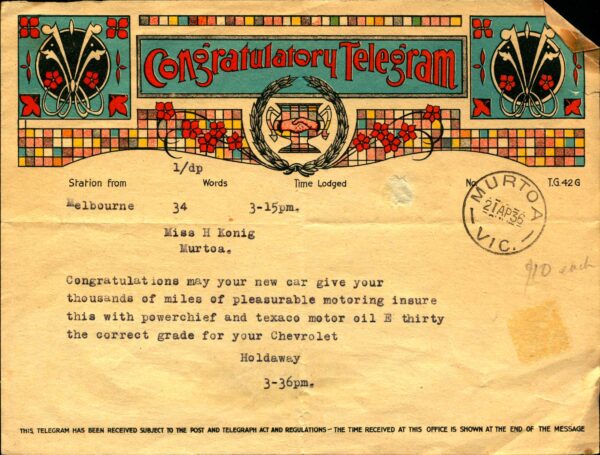 Congratulatory Telegram
1/dp
Station from Words Time Lodged No. T.G. 42 G
Melbourne 34 3-15pm.
MURTOA
21 AP 36
VIC.
Miss H Konig
Murtoa.
$10 each
Congratulations may your new car give your
thousands of miles of pleasurable motoring insure
this with powerchief and texaco motor oil E thirty
the correct grade for your Chevrolet
Holdaway
3-36pm.
THIS TELEGRAM HAS BEEN RECEIVED SUBJECT TO THE POST AND TELEGRAPH ACT AND REGULATIONS — THE TIME RECEIVED AT THIS OFFICE IS SHOWN AT THE END OF THE MESSAGE